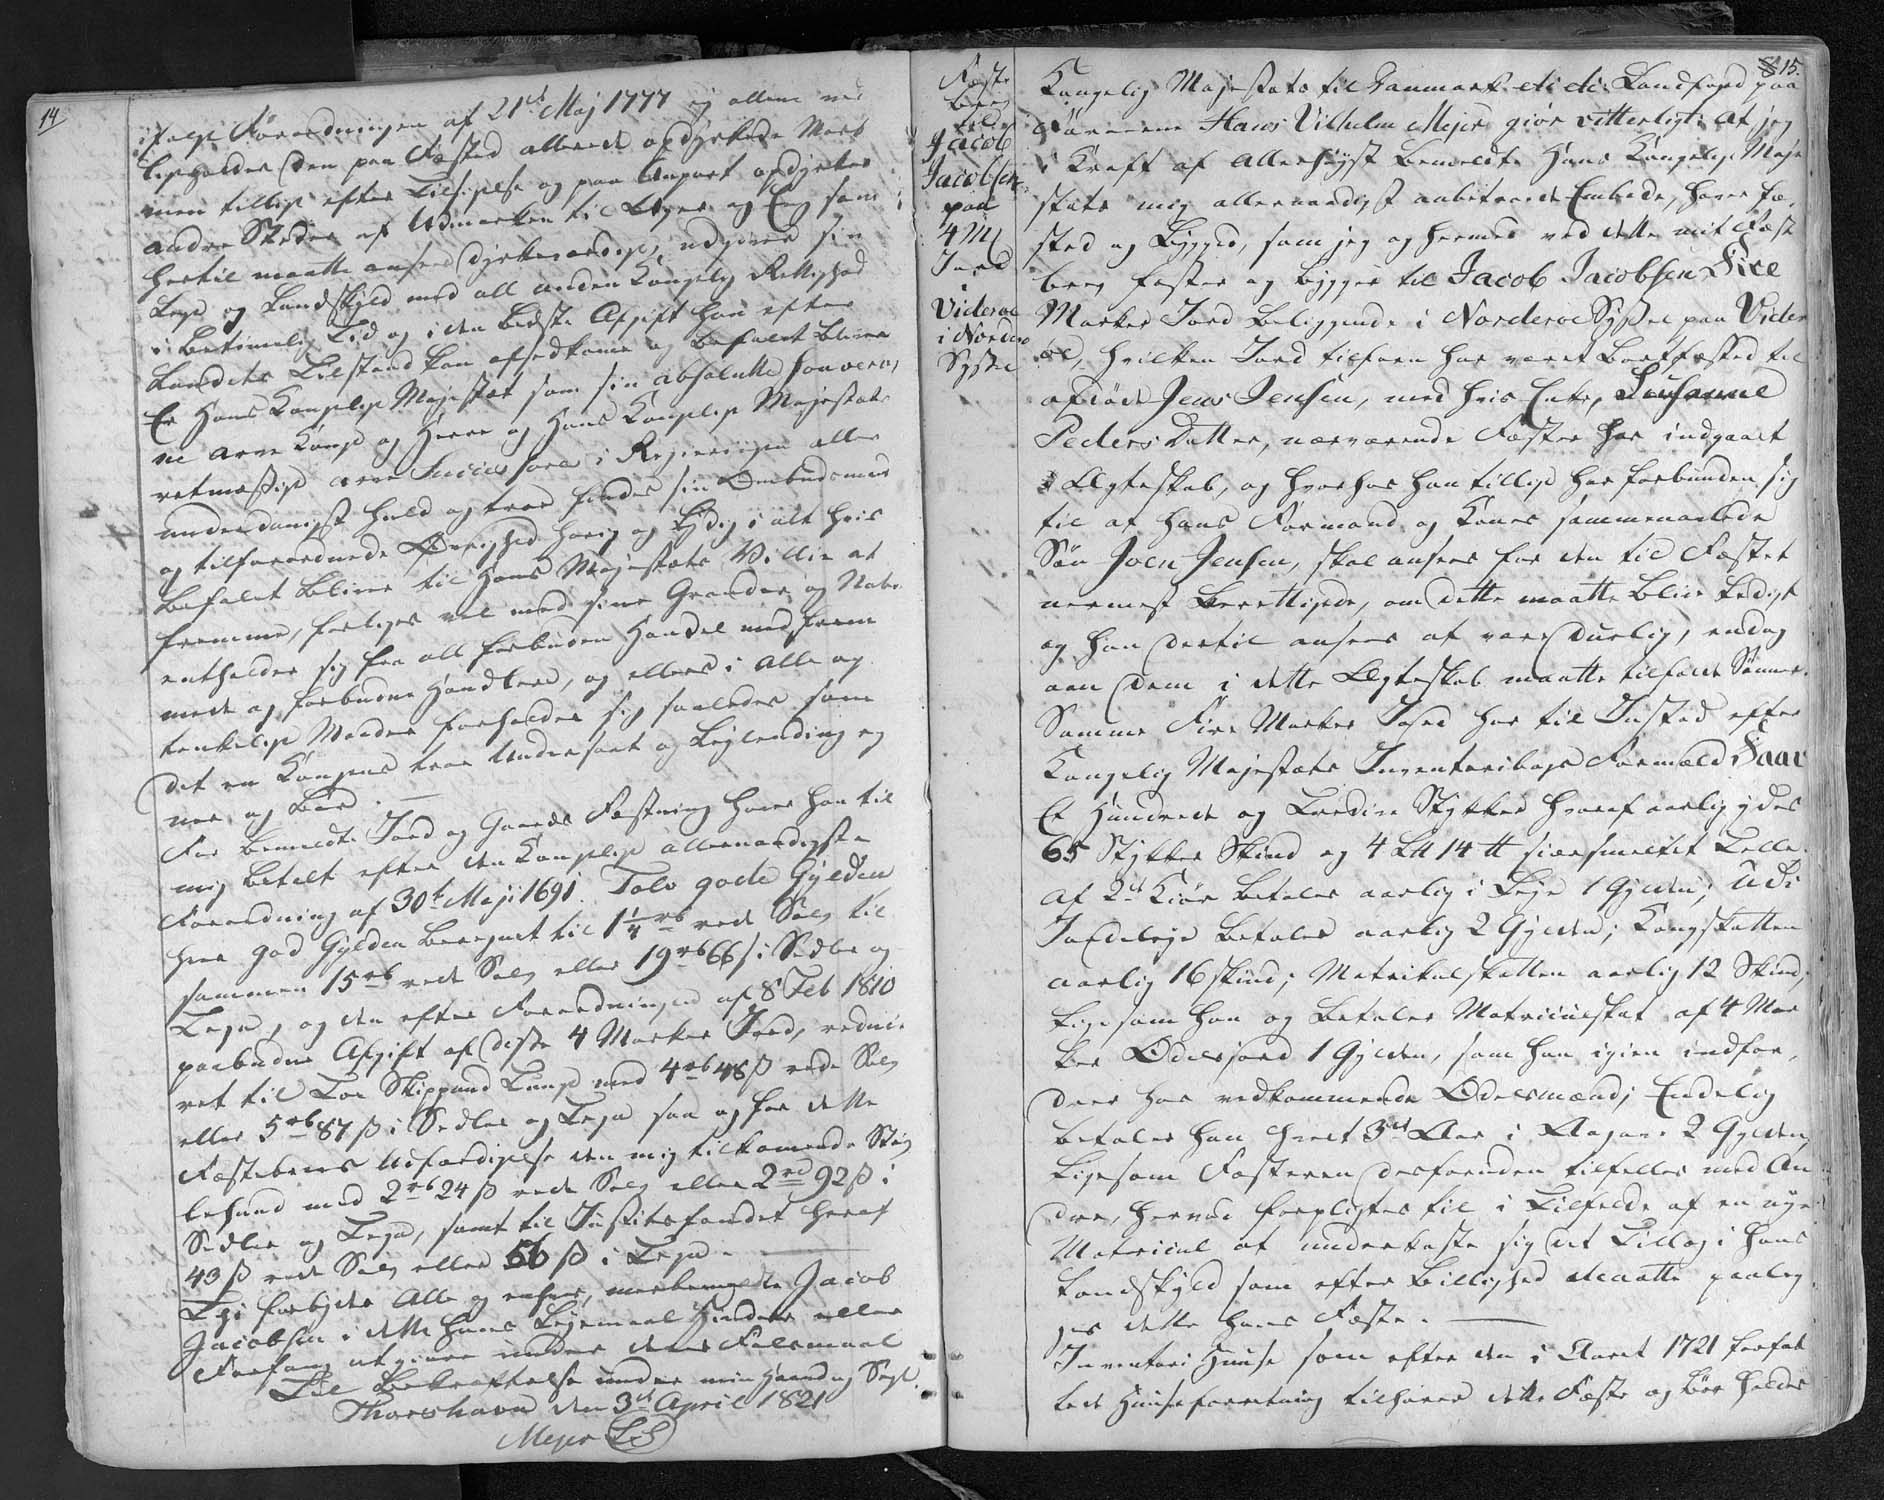 14
ifølge Forordningen af 21de Maj 1777 ej allene ved
ligeholder den paa Fæsted allerede opdyrkede Mark
men tillige efter Tilsigelse og paa Anpart opdyrker
andre Steder af Udmarken til Ager og Eng som
hertil maatte ansees dyrkeværdige, udgiver sin
Leye og Landskyld med all anden Kongelig Rettighed
i betimelig Tid og i den bedste Afgift han efter
Landets Tilstand kan afsedkomme og befalet bliver
Er Hans Kongelige Majestæt som sin absolutte souverai
ne Arve Konge og Herre og Hans Kongelige Majestæts
retmæssige arve Successorer i Regieringen aller
underdanigst huld og troe findes sin Ombudsmand
og tilforordnede Øvrighed hørig og lydig i alt hvis
befalet bliver til Hans Majestæts Villie at
fremme, forliges vel med sine Grander og Nabo
entholder sig fra all forbuden Handel med frem
mede og forbudne Handlere, og ellers i Alle og
tænkelige Maader forholder sig saaledes som
det en Kongens troe Undersaat og Lejlending eg
ner og bør. —
For bemeldte Jord og Gaards Fæstning haver han til
mig betalt efter den Kongelige allernaadigste
Forordning af 30te Maji 1691. Tolv gode Gylden
hver god Gylden beregnet til 1¼ rb rede Sølv til
sammen 15 rb rede Sølv eller 19 rb 66 s i Sedler og
Tegn, og den efter Forordningen af 8 Feb 1810
paabudne Afgift af disse 4 Marker Jord, reduce
ret til Toe Skippund Tunge med 4 rb 48 ß rede Sølv
eller 5 rb 87 ß i Sedler og Tegn saa og for dette
Fæstebrevs Udfærdigelse den mig tilkomende Støv
lehund med 2 rb 24 ß rede Sølv eller 2 rd 92 ß i
Sedler og Tegn, samt til Justitsfondet heraf
43 ß rede Sølv eller 56 ß i Tegn. —
Thi forbydes Alle og enhver, merbemeldte Jacob
Jacobsen i dette hans Lejemaal Hinder eller
Forfang at giøre under deres Falsmaal
Til Bekræftelse under min Haand og Segl.
Thorshavn den 3de April 1821
Mejer LS
Fæste
brev
til
Jacob
Jacobsen
paa
4 Mk
Jord
i
Videroe
i Norderoe
Syssel
15.
Kongelig Majestæts til Danmark etc etc Landfoged paa
Færroerne Hans Vilhelm Mejer giør vitterligt: At jeg
i Kraft af Allerhøyst bemeldte Hans Kongelige Maje
stæts mig allernaadigst anbetroede Embede, haver fæ,
sted og bygged, som jeg og hermed ved dette mit Fæste
brev fæster og bygger til Jacob Jacobsen Fire
Marker Jord beliggende i Norderoe Syßel paa Vider
øe, hvilken Jord tilforn har været bortfæsted til
afdøde Jens Jensen, med hvis Enke, Susanne
Peders Datter, nærværende Fæster har indgaaet
i Ægteskab, og hvorhos han tillige har forbunden sig
til at hans Formand og Kones sammenavlede
Søn Joen Jensen, skal ansees for den til Fæstet
nermest berettigede, om dette maatte blive ledigt
og han dertil ansees at være duelig, endog
om dem i dette Ægteskab maatte tilfalde Sønner.
Samme Fire Marker Jord har til Jnsted efter
Kongelig Majestæts Jnventariibogs Formæld Faar
Et Hundrede og Tredive Stykker hvoraf aarlig ydes
65 Stykker Skind og 4 L℔ 14 ℔ siersmeltet Telle.
Af 2de Kiør betales aarlig i Leje 1 Gylden; Udi
Jordeleje betales aarlig 2 Gylden; Kongskatten
aarlig 16 skind; Matrikulskatten aarlig 12 Skind,
ligesom han og betaler Matriculskat af 4 Mar
ker Odelsjord 1 Gylden, som han igien indfor,
drer hos vedkommende Odelsmænd; Endelig
betaler han hvert 3de Aar i 2 Gylden,
ligesom Fæsteren desforuden tilfelles med An
dre, herved forpligtes til i Tilfælde af en nye
Matricul at underkaste sig det Tillæg i hans
Landskyld som efter Billighed maatte paalæg
ges dette hans Fæste. —
Jnventarii Huuse som efter den i Aaret 1721 forfat
tede Huusforretning tilhører dette Fæste og bør holdes